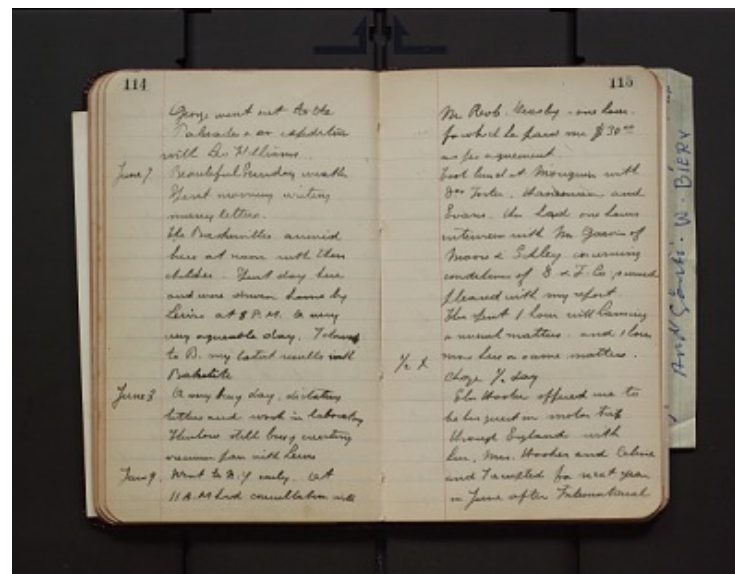 114
George went out to the
Palisades on expedition
with Leo Williams.
June 7 Beautiful Sunday weather
Spent morning writing
many letters.
The Baskervilles arrived
here at noon with their
children. Spent day here
and were driven home by
Lewis at 8 P.M. A very
very agreeable day. I showed
to B. my latest results with
Bakelite
June 8 A very busy day, dictating
letters and work in laboratory
Thurlow still busy erecting
vacuum pan with Lewis
June 9. Went to N.Y early. At
11 A.M had consultation with
115
Mr Robb. one hour
for which he paid me $30.00
as per agreement.
Took lunch at Mouquin with
Drs Toch, and
Evans. Then had one hours
interview with Mr Garvin of
Moore & Schley concerning
conditions of T. Co. seemed
pleased with my report.
Then spent 1 hour with
on several matters. and 1 hour
more here on same matters.
1/2 X charge 1/2 day
Elon Hooker offered me to
be his guest on motor trip
through England with
him, Mrs. Hooker and Celine
and I accepted for next year
in June after International
And W. BIERY